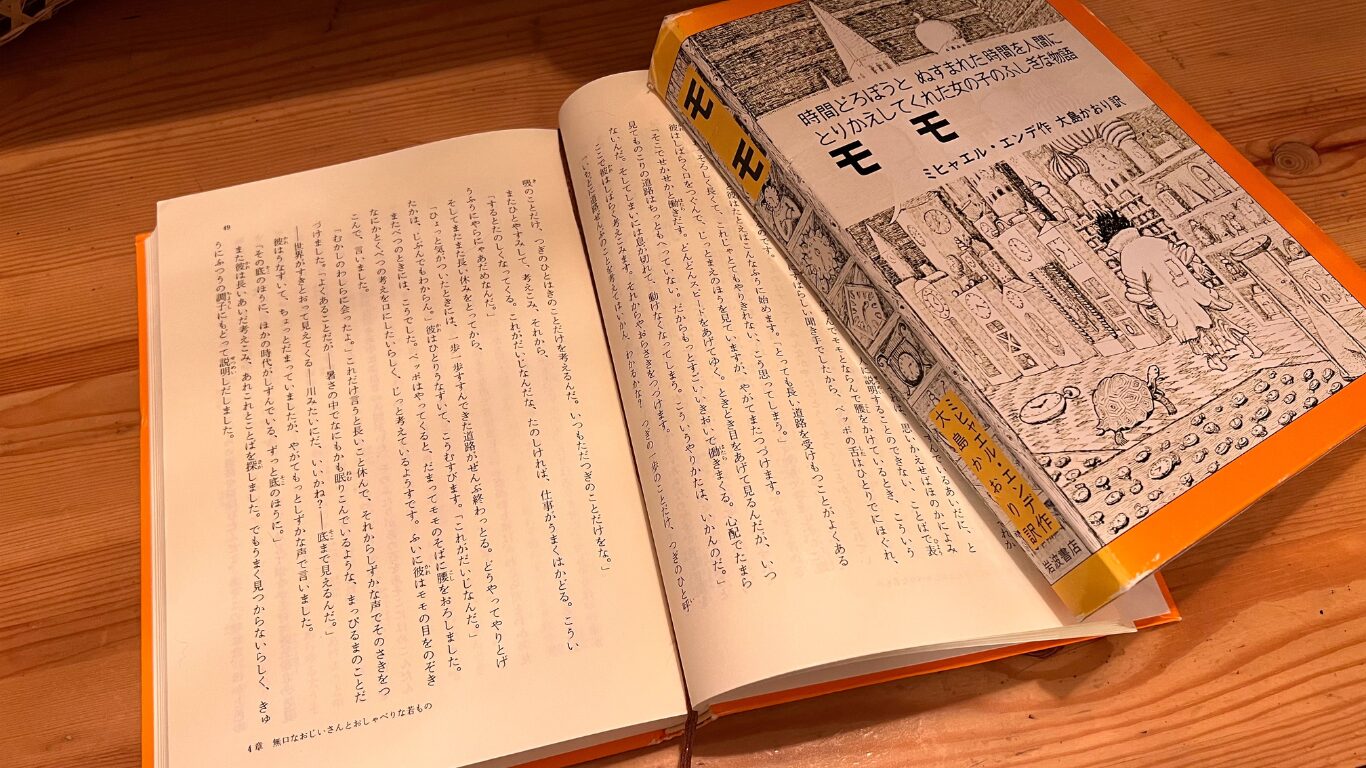 時間どろぼうと ぬすまれた時間を人間に
とりかえしてくれた女の子のふしぎな物語
モモ
ミヒャエル・エンデ作 大島かおり訳
モモ
ミヒャエル・エンデ作
大島かおり訳
岩波書店
るあいだに、と
思いかえせばほのかによみ
に説明することのできない、ことばで表
んでモモとならんで腰をかけているとき、こういう
ばらしい聞き手でしたから、ベッポの舌はひとりでにほぐれ、
のです。
彼はたとえばこんなふうに始めます。「とっても長い道路を受けもつことがよくある
そろしく長くて、これじゃとてもやりきれない、こう思ってしまう。」
彼はしばらく口をつぐんで、じっとまえのほうを見ていますが、やがてまたつづけます。
「そこでせかせかと働きだす。どんどんスピードをあげてゆく。ときどき目をあげて見るんだが、いつ
見てものこりの道路はちっともへっていない。だからもっとすごいいきおいで働きまくる。心配でたまら
ないんだ。そしてしまいには息が切れて、動けなくなってしまう。こういうやりかたは、いかんのだ。」
ここで彼はしばらく考えこみます。それからやおらさきをつづけます。
「いちどに道路ぜんぶのことを考えてはいかん、わかるかな? つぎの一歩のことだけ、つぎのひと呼
吸のことだけ、つぎのひとはきのことだけを考えるんだ。いつもただつぎのことだけをな。」
またひとやすみして、考えこみ、それから、
「するとたのしくなってくる。これがだいじなんだな、たのしければ、仕事がうまくはかどる。こうい
うふうにやらにゃあだめなんだ。」
そしてまたまた長い休みをとってから、
「ひょっと気がついたときには、一歩一歩すすんできた道路がぜんぶ終わっとる。どうやってやりとげ
たかは、じぶんでもわからん。」彼はひとりうなずいて、こうむすびます。「これがだいじなんだ。」
またべつのときには、こうでした。ベッポはやってくると、だまってモモのそばに腰をおろしました。
なにかとくべつの考えを口にしたいらしく、じっと考えているようすです。ふいに彼はモモの目をのぞき
こんで、言いました。
「むかしのわしらに会ったよ。」これだけ言うと長いこと休んで、それからしずかな声でそのさきをつ
づけました。「よくあることだが――暑さの中でなにもかも眠りこんでいるような、まっぴるまのことだ
――世界がすきとおって見えてくる――川みたいにだ、いいかね?――底まで見えるんだ。」
彼はうなずいて、ちょっとだまっていましたが、やがてもっとしずかな声で言いました。
「その底のほうに、ほかの時代がしずんでいる、ずっと底のほうに。」
また彼は長いあいだ考えこみ、あれこれとことばを探しました。でもうまく見つからないらしく、きゅ
うにふつうの調子にもどって説明しだしました。
49
4章 無口なおじいさんとおしゃべりな若もの